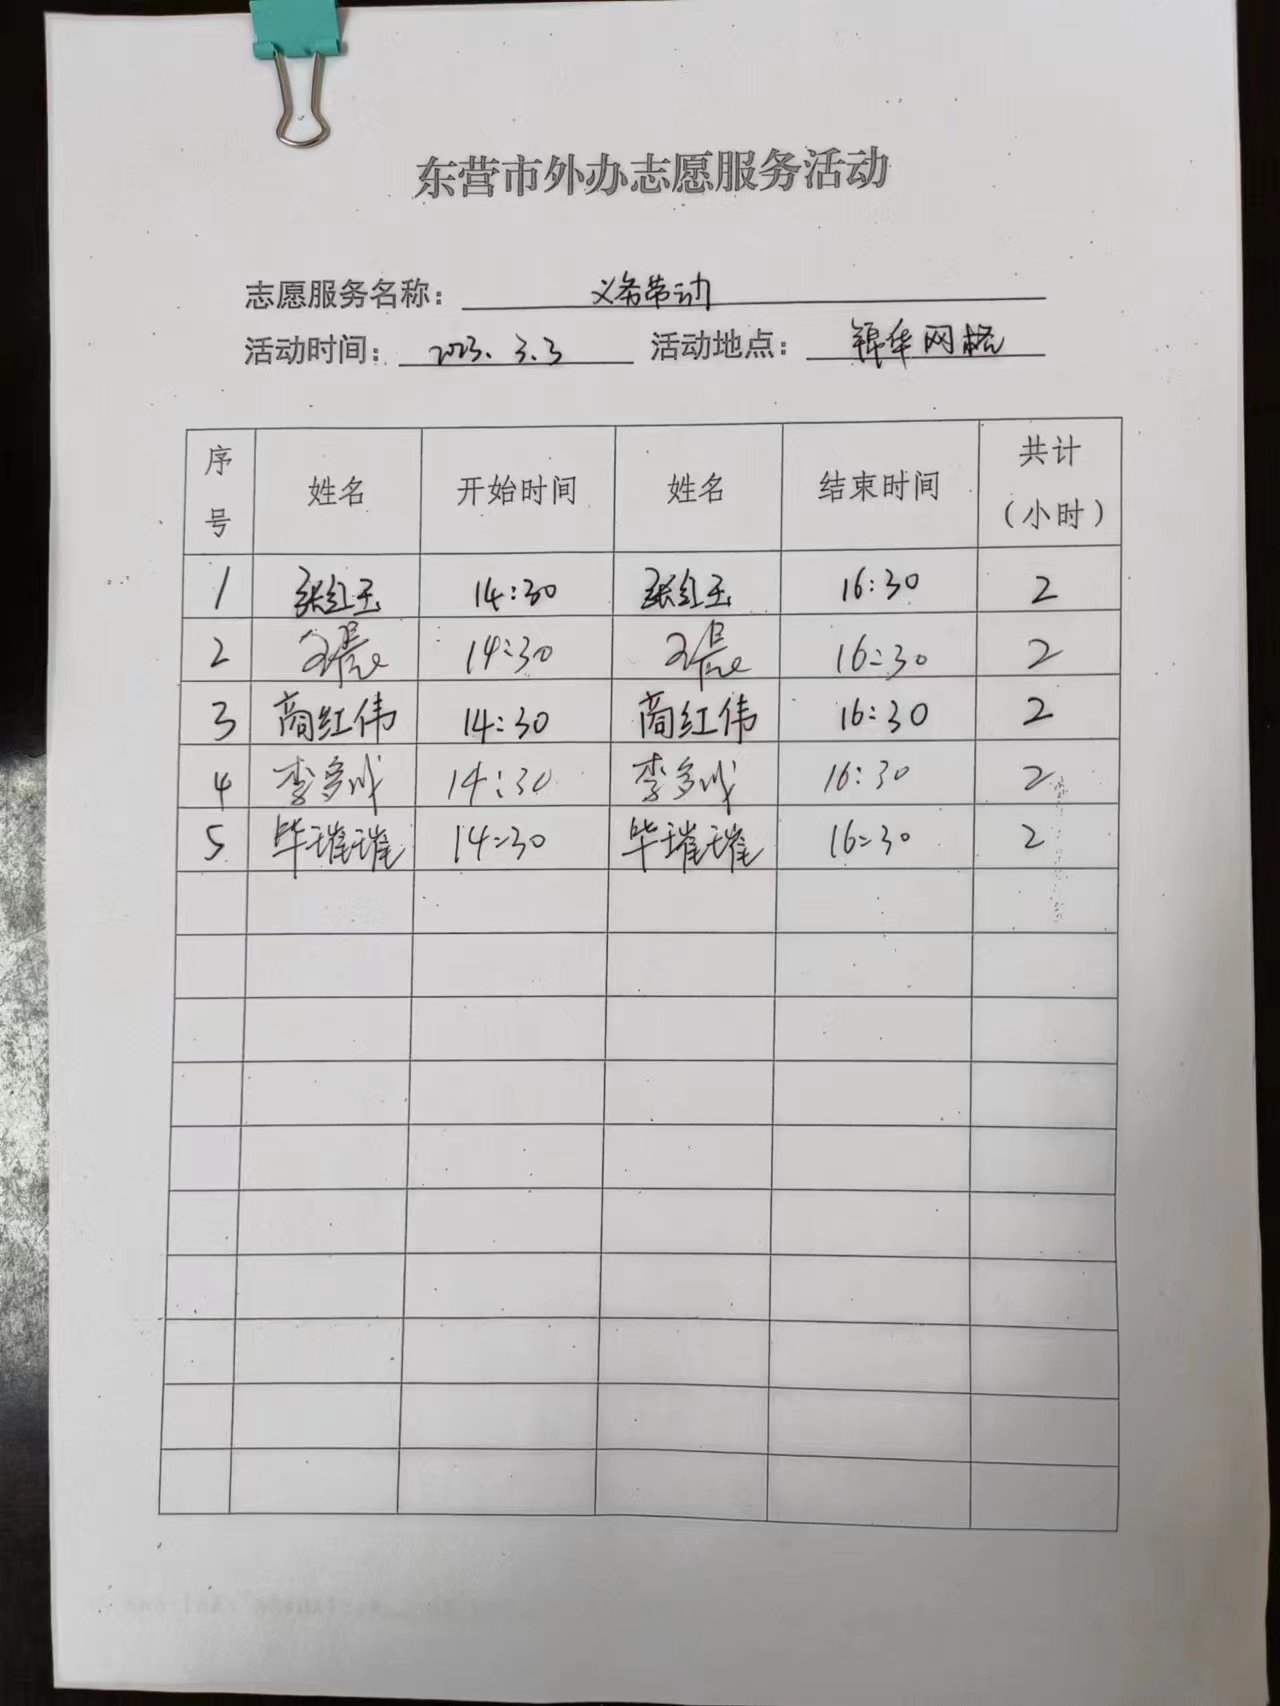 东营市外办志愿服务活动
志愿服务名称： 义务劳动
活动时间： 2023.3.3 活动地点： 锦华网格
序号 姓名 开始时间 姓名 结束时间 共计（小时）
1 张红玉 14:30 张红玉 16:30 2
2 14:30 16:30 2
3 商红伟 14:30 商红伟 16:30 2
4 李多成 14:30 李多成 16:30 2
5 毕璀璀 14:30 毕璀璀 16:30 2